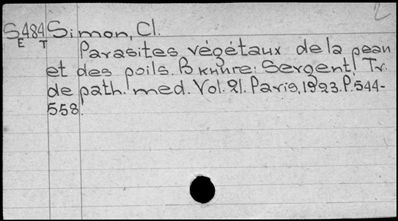 2
S484 Simon, Cl.
E T
Parasites végétaux de la peau
et des poils. В книге: Sergent. Tr.
de path. med. Vol. 21. Paris, 1923. P. 544-
558.